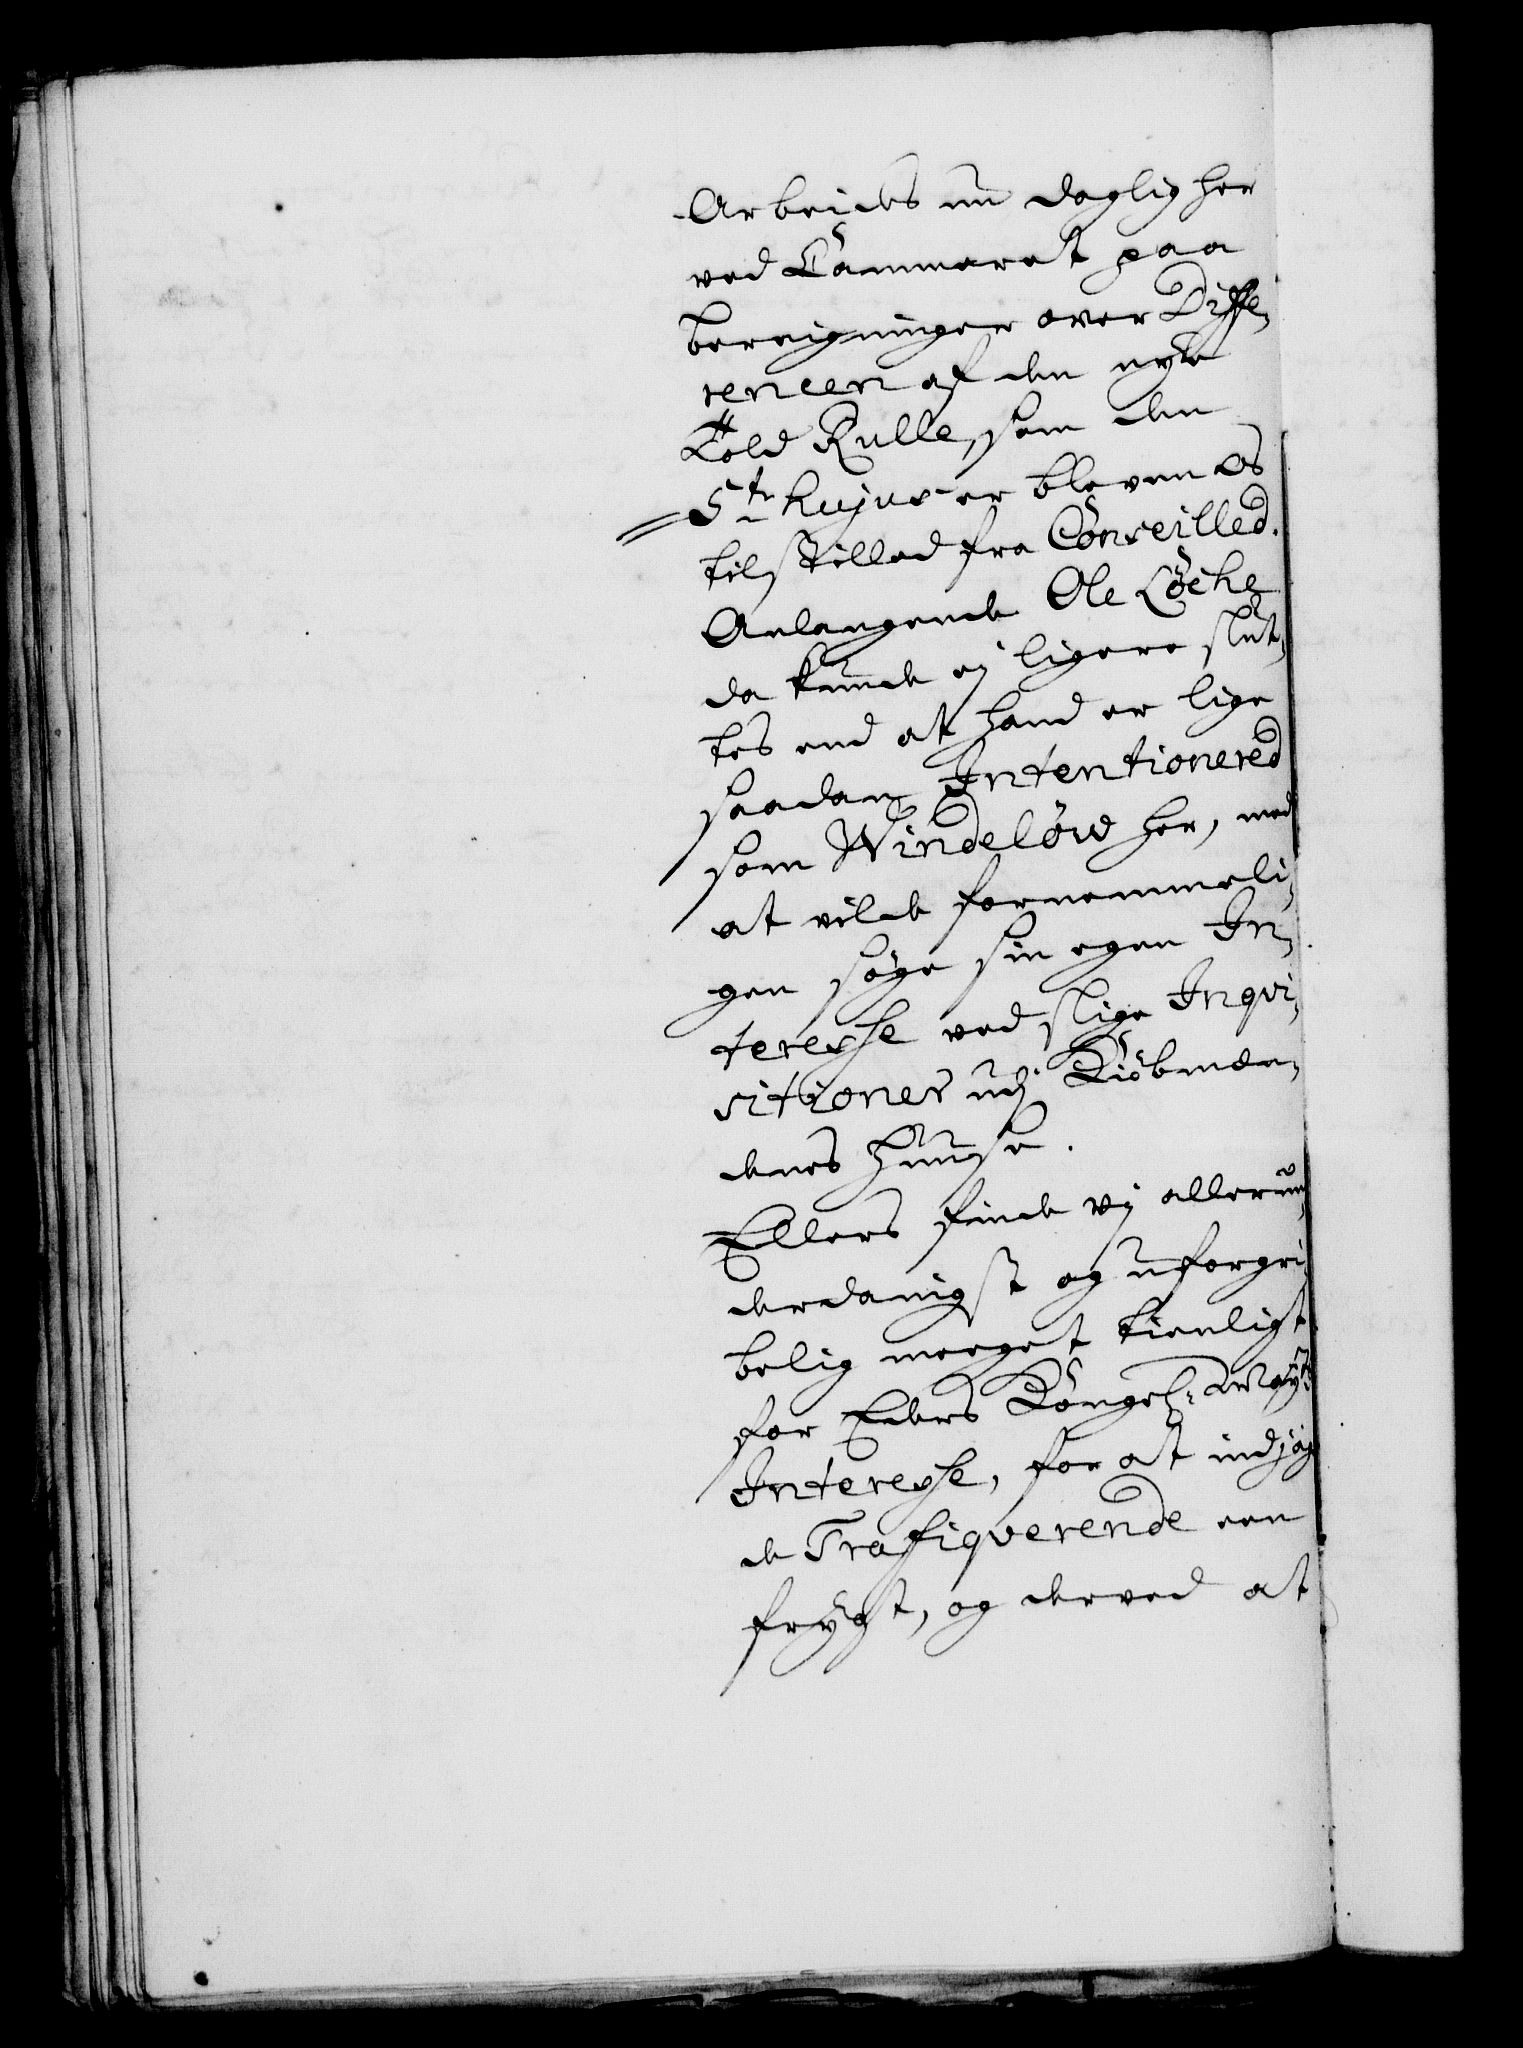 Arbeides nu daglig her
ved Cammeret paa
bereigninger over Diffe,
rencen af den nyle
Told Rulle, som den
5te hujus er bleven os
tilstilled fra Conseilled.
Anlangende Ole Löche
da kunde ej ligere slut,
tes end at hand er lige
saadan Intentionered
som Windelöw her, med
at vilde fornemmeli,
gen söge sin egen In,
teresse ved slige Inqvi,
sitioner udj Kiöbmæn,
denes Huuse.
Ellers finde vj allerun,
derdanigst og uforgri,
belig meeget tienligt
for Eders Kongel: Mayts
Interesse, for at indjage
de Trafiqverende een
frygt, og derved at